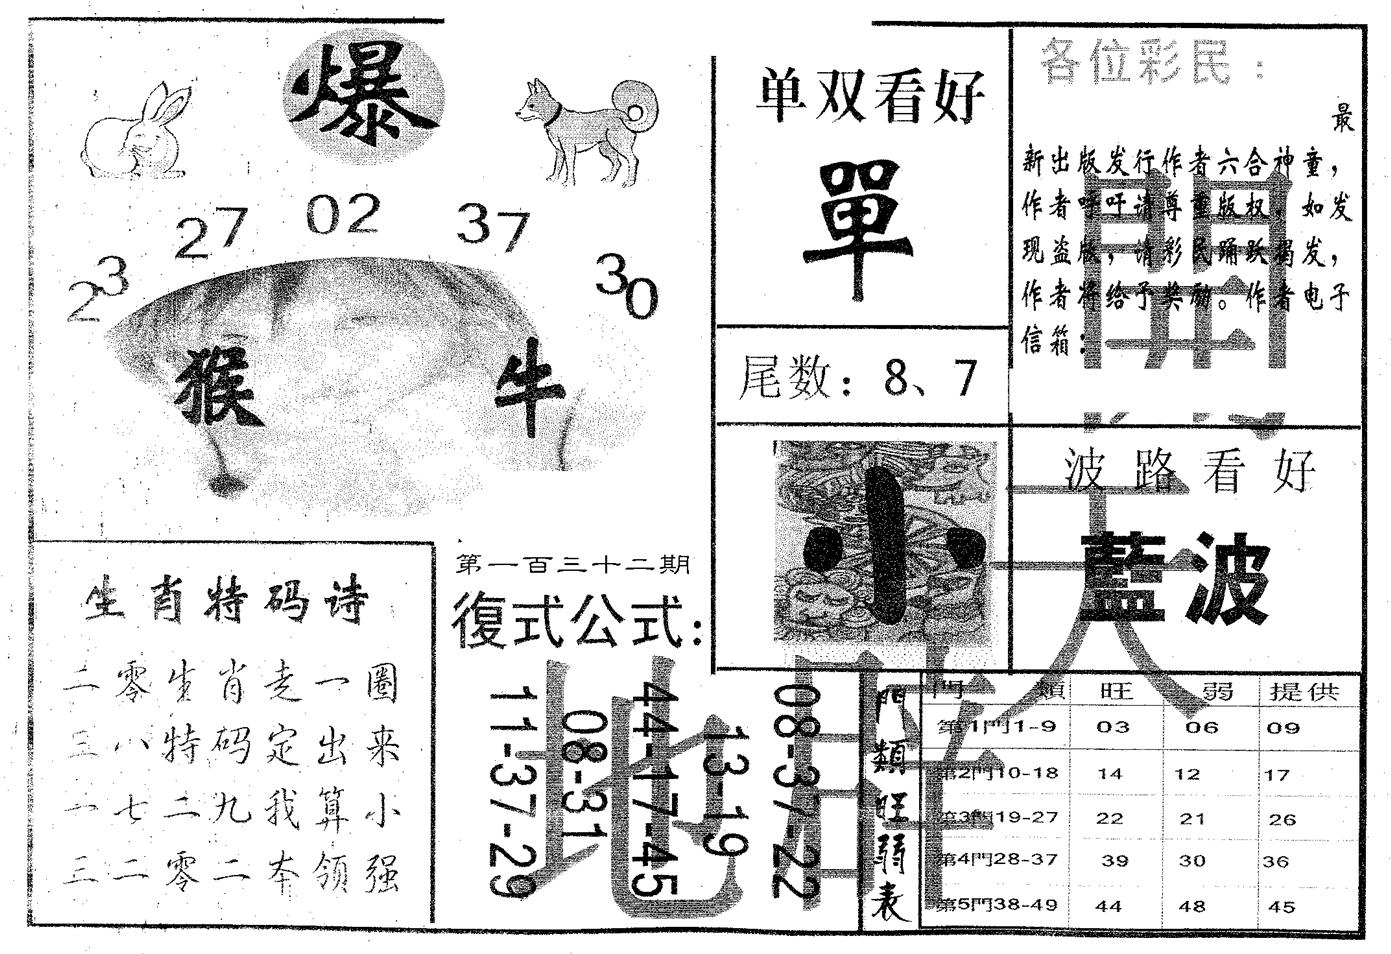 爆
23
27
02
37
30
猴
牛
单双看好
單
尾数：8、7
各位彩民：
最
新出版发行作者六合神童，
作者呼吁请尊重版权，如发
现盗版，请彩民踊跃揭发，
作者将给予奖励。作者电子
信箱：
小
波路看好
藍波
生肖特码诗
二零生肖走一圈
三八特码定出来
一七二九我算小
三二零二本领强
第一百三十二期
復式公式：
11-37-29
08-31
44-17-45
13-19
08-37-22
門類旺弱表
門 類 旺 弱 提供
第1門1-9 03 06 09
第2門10-18 14 12 17
第3門19-27 22 21 26
第4門28-37 39 30 36
第5門38-49 44 48 45